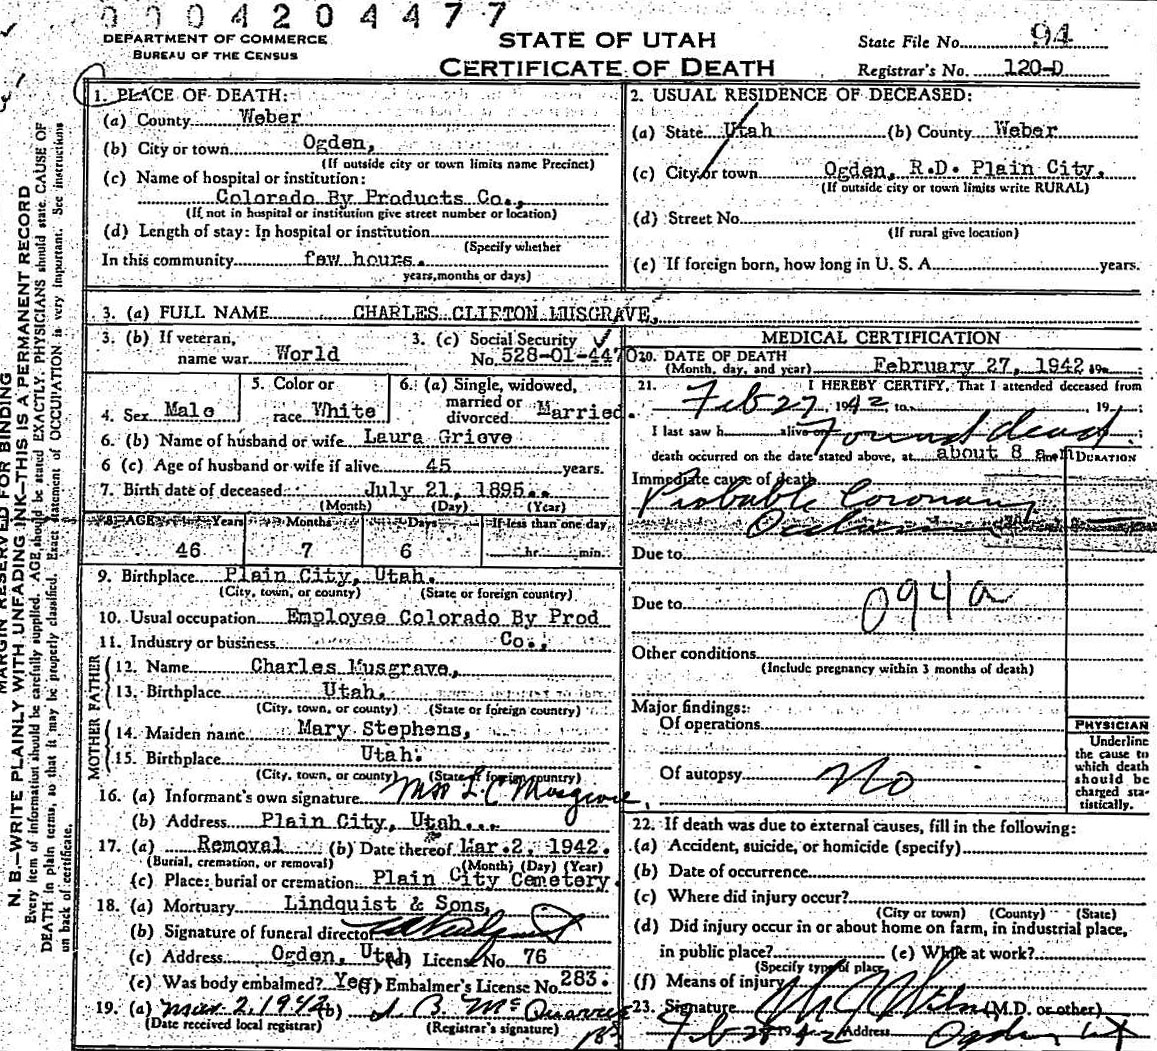 0004204477
DEPARTMENT OF COMMERCE
BUREAU OF THE CENSUS
STATE OF UTAH
CERTIFICATE OF DEATH
State File No. 94
Registrar's No. 120-D
MARGIN RESERVED FOR BINDING
N. B.—WRITE PLAINLY WITH UNFADING INK—THIS IS A PERMANENT RECORD
Every item of information should be carefully supplied. AGE should be stated EXACTLY. PHYSICIANS should state CAUSE OF
DEATH in plain terms, so that it may be properly classified. Exact statement of OCCUPATION is very important. See instructions
on back of certificate.
1. PLACE OF DEATH:
(a) County Weber
(b) City or town Ogden,
(If outside city or town limits name Precinct)
(c) Name of hospital or institution:
Colorado By Products Co.,
(If not in hospital or institution give street number or location)
(d) Length of stay: In hospital or institution
(Specify whether
In this community few hours.
years, months or days)
2. USUAL RESIDENCE OF DECEASED:
(a) State Utah (b) County Weber
(c) City or town Ogden, R.D. Plain City.
(If outside city or town limits write RURAL)
(d) Street No.
(If rural give location)
(e) If foreign born, how long in U. S. A. years.
3. (a) FULL NAME CHARLES CLIFTON MUSGRAVE,
3. (b) If veteran,
name war World
3. (c) Social Security
No. 528-01-4470
4. Sex Male
5. Color or
race White
6. (a) Single, widowed,
married or
divorced Married.
6. (b) Name of husband or wife Laura Grieve
6 (c) Age of husband or wife if alive 45 years.
7. Birth date of deceased July 21, 1895..
(Month) (Day) (Year)
8. AGE Years Months Days If less than one day
46 7 6 hr. min.
9. Birthplace Plain City, Utah.
(City, town, or county) (State or foreign country)
10. Usual occupation Employee Colorado By Prod
11. Industry or business Co.,
FATHER
12. Name Charles Musgrave,
13. Birthplace Utah.
(City, town, or county) (State or foreign country)
MOTHER
14. Maiden name Mary Stephens,
15. Birthplace Utah.
(City, town, or county) (State or foreign country)
16. (a) Informant's own signature Mrs L C Musgrave,
(b) Address Plain City, Utah...
17. (a) Removal (b) Date thereof Mar. 2, 1942.
(Burial, cremation, or removal) (Month) (Day) (Year)
(c) Place: burial or cremation Plain City Cemetery.
18. (a) Mortuary Lindquist & Sons,
(b) Signature of funeral director
(c) Address Ogden, Utah (d) License No. 76
(e) Was body embalmed? Yes (f) Embalmer's License No. 283.
19. (a) Mar 2, 1942 (b)
(Date received local registrar) (Registrar's signature)
MEDICAL CERTIFICATION
20. DATE OF DEATH
(Month, day, and year) February 27, 1942. 19
21. I HEREBY CERTIFY, That I attended deceased from
Feb 27, 1942, to 19 ;
I last saw h alive on Found dead.
death occurred on the date stated above, at about 8 a.m
DURATION
Immediate cause of death
Probable Coronary
Occlusion
Due to
Due to 094a
Other conditions
(Include pregnancy within 3 months of death)
Major findings:
Of operations
Of autopsy No
PHYSICIAN
Underline
the cause to
which death
should be
charged sta-
tistically.
22. If death was due to external causes, fill in the following:
(a) Accident, suicide, or homicide (specify)
(b) Date of occurrence
(c) Where did injury occur?
(City or town) (County) (State)
(d) Did injury occur in or about home on farm, in industrial place,
in public place? (e) While at work?
(Specify type of place
(f) Means of injury
23. Signature (M.D. or other)
Feb 28 1942 Address Ogden, Ut